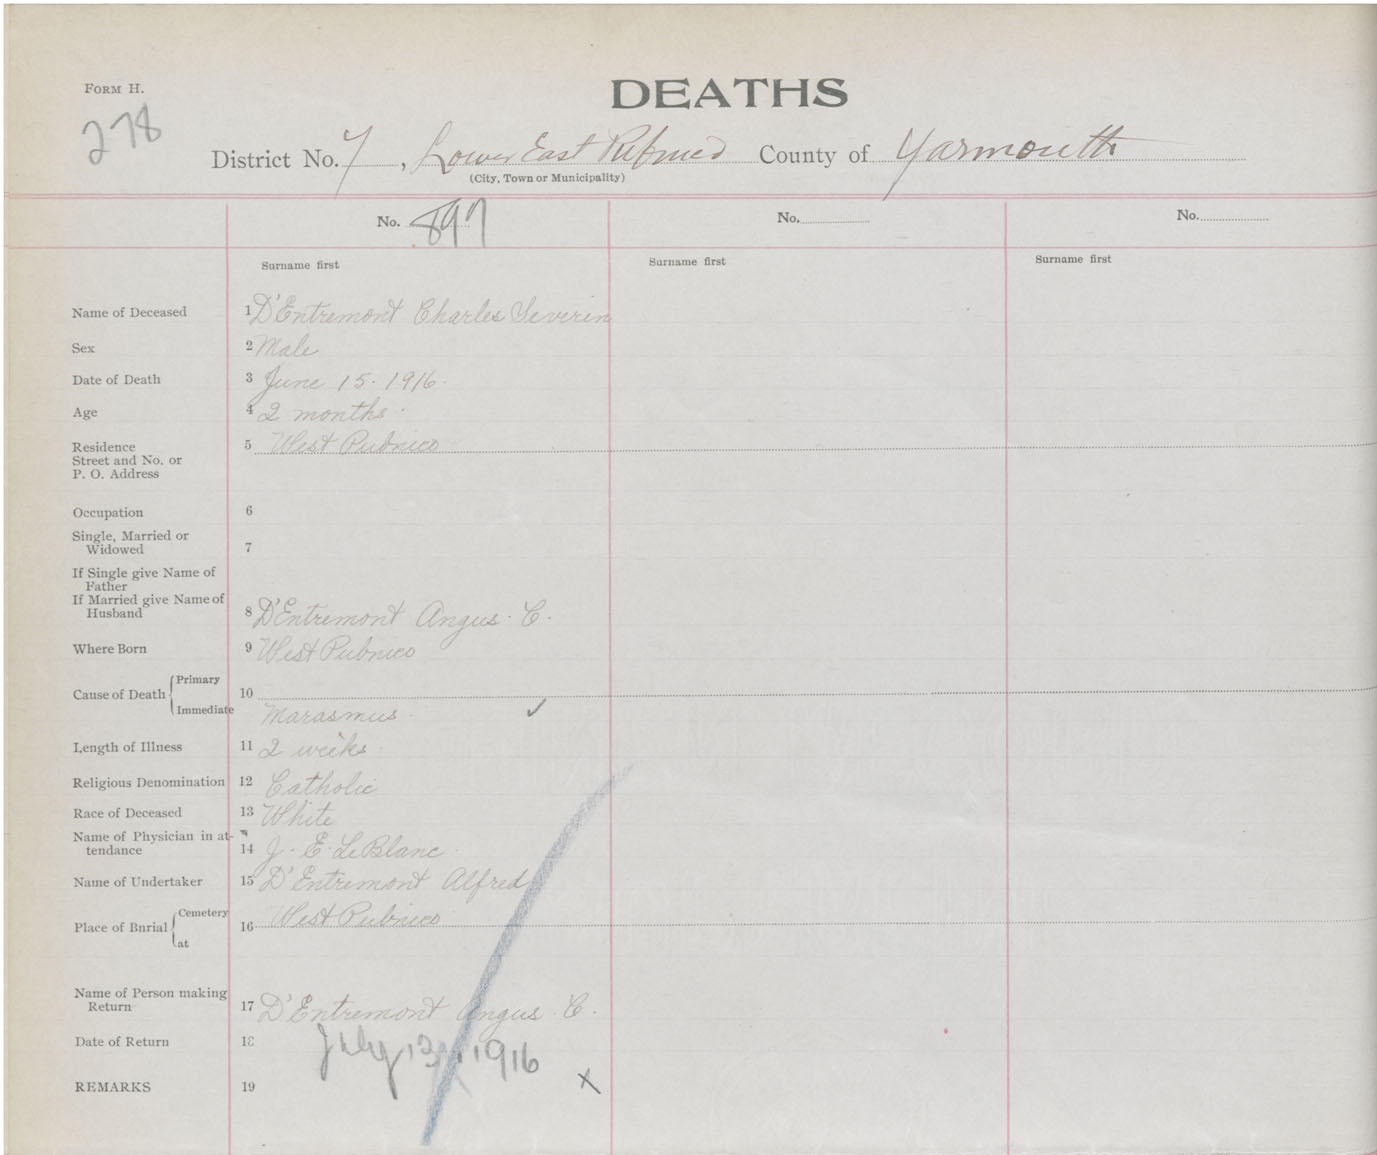 FORM H.
DEATHS
278
District No. 7, Lower East Pubnico County of Yarmouth
(City, Town or Municipality)
No. 897 No. No.
Surname first Surname first Surname first
Name of Deceased 1 D'Entremont Charles Severin
Sex 2 Male
Date of Death 3 June 15. 1916.
Age 4 2 months.
Residence 5 West Pubnico
Street and No. or
P. O. Address
Occupation 6
Single, Married or
Widowed 7
If Single give Name of
Father
If Married give Name of
Husband 8 D'Entremont Angus. C.
Where Born 9 West Pubnico
Cause of Death { Primary 10
Immediate Marasmus. ✓
Length of Illness 11 2 weeks.
Religious Denomination 12 Catholic
Race of Deceased 13 White
Name of Physician in at-
tendance 14 J. E. LeBlanc.
Name of Undertaker 15 D'Entremont Alfred
Place of Burial { Cemetery 16 West Pubnico
at
Name of Person making
Return 17 D'Entremont Angus. C.
Date of Return 18 July 13, 1916
REMARKS 19 X